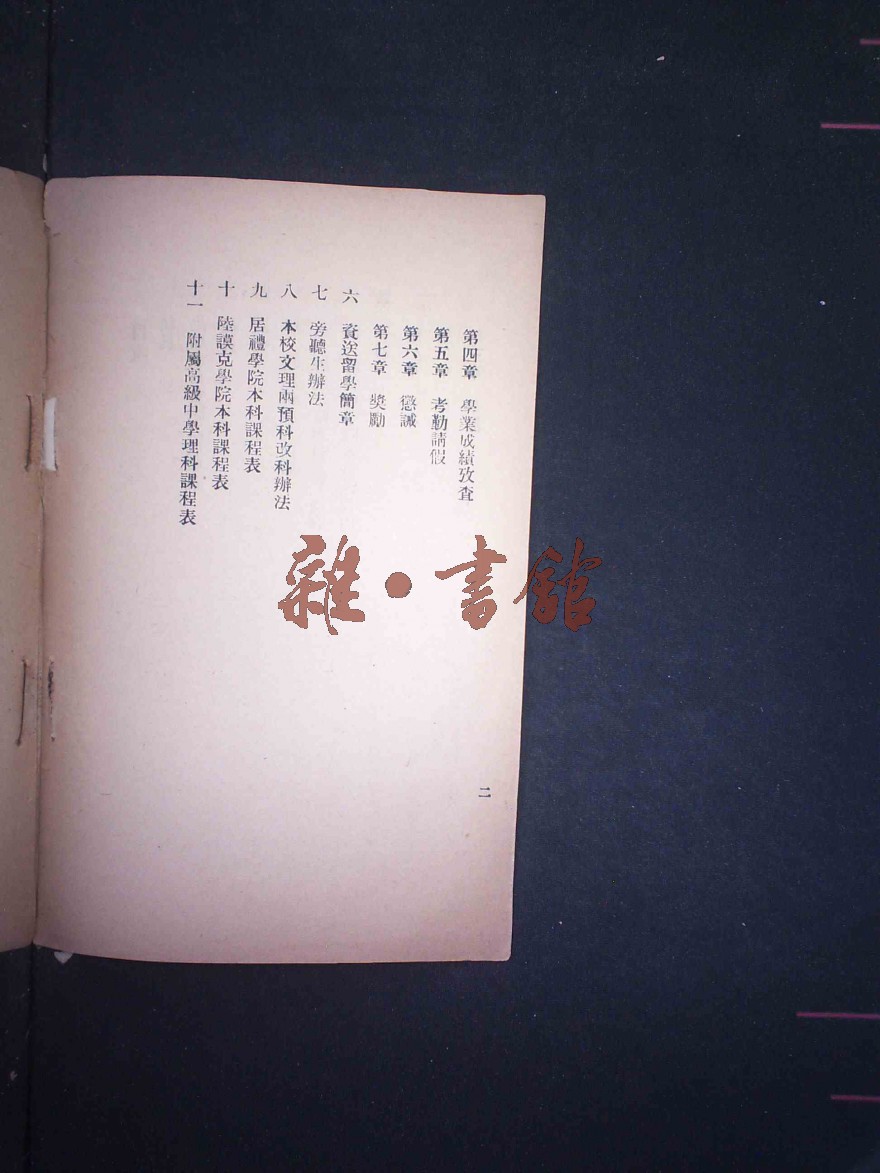 第四章　學業成績攷查
第五章　考勤請假
第六章　懲誡
第七章　奬勵
六　資送留學簡章
七　旁聽生辦法
八　本校文理兩預科改科辦法
九　居禮學院本科課程表
十　陸謨克學院本科課程表
十一　附屬高級中學理科課程表
二
雜•書館